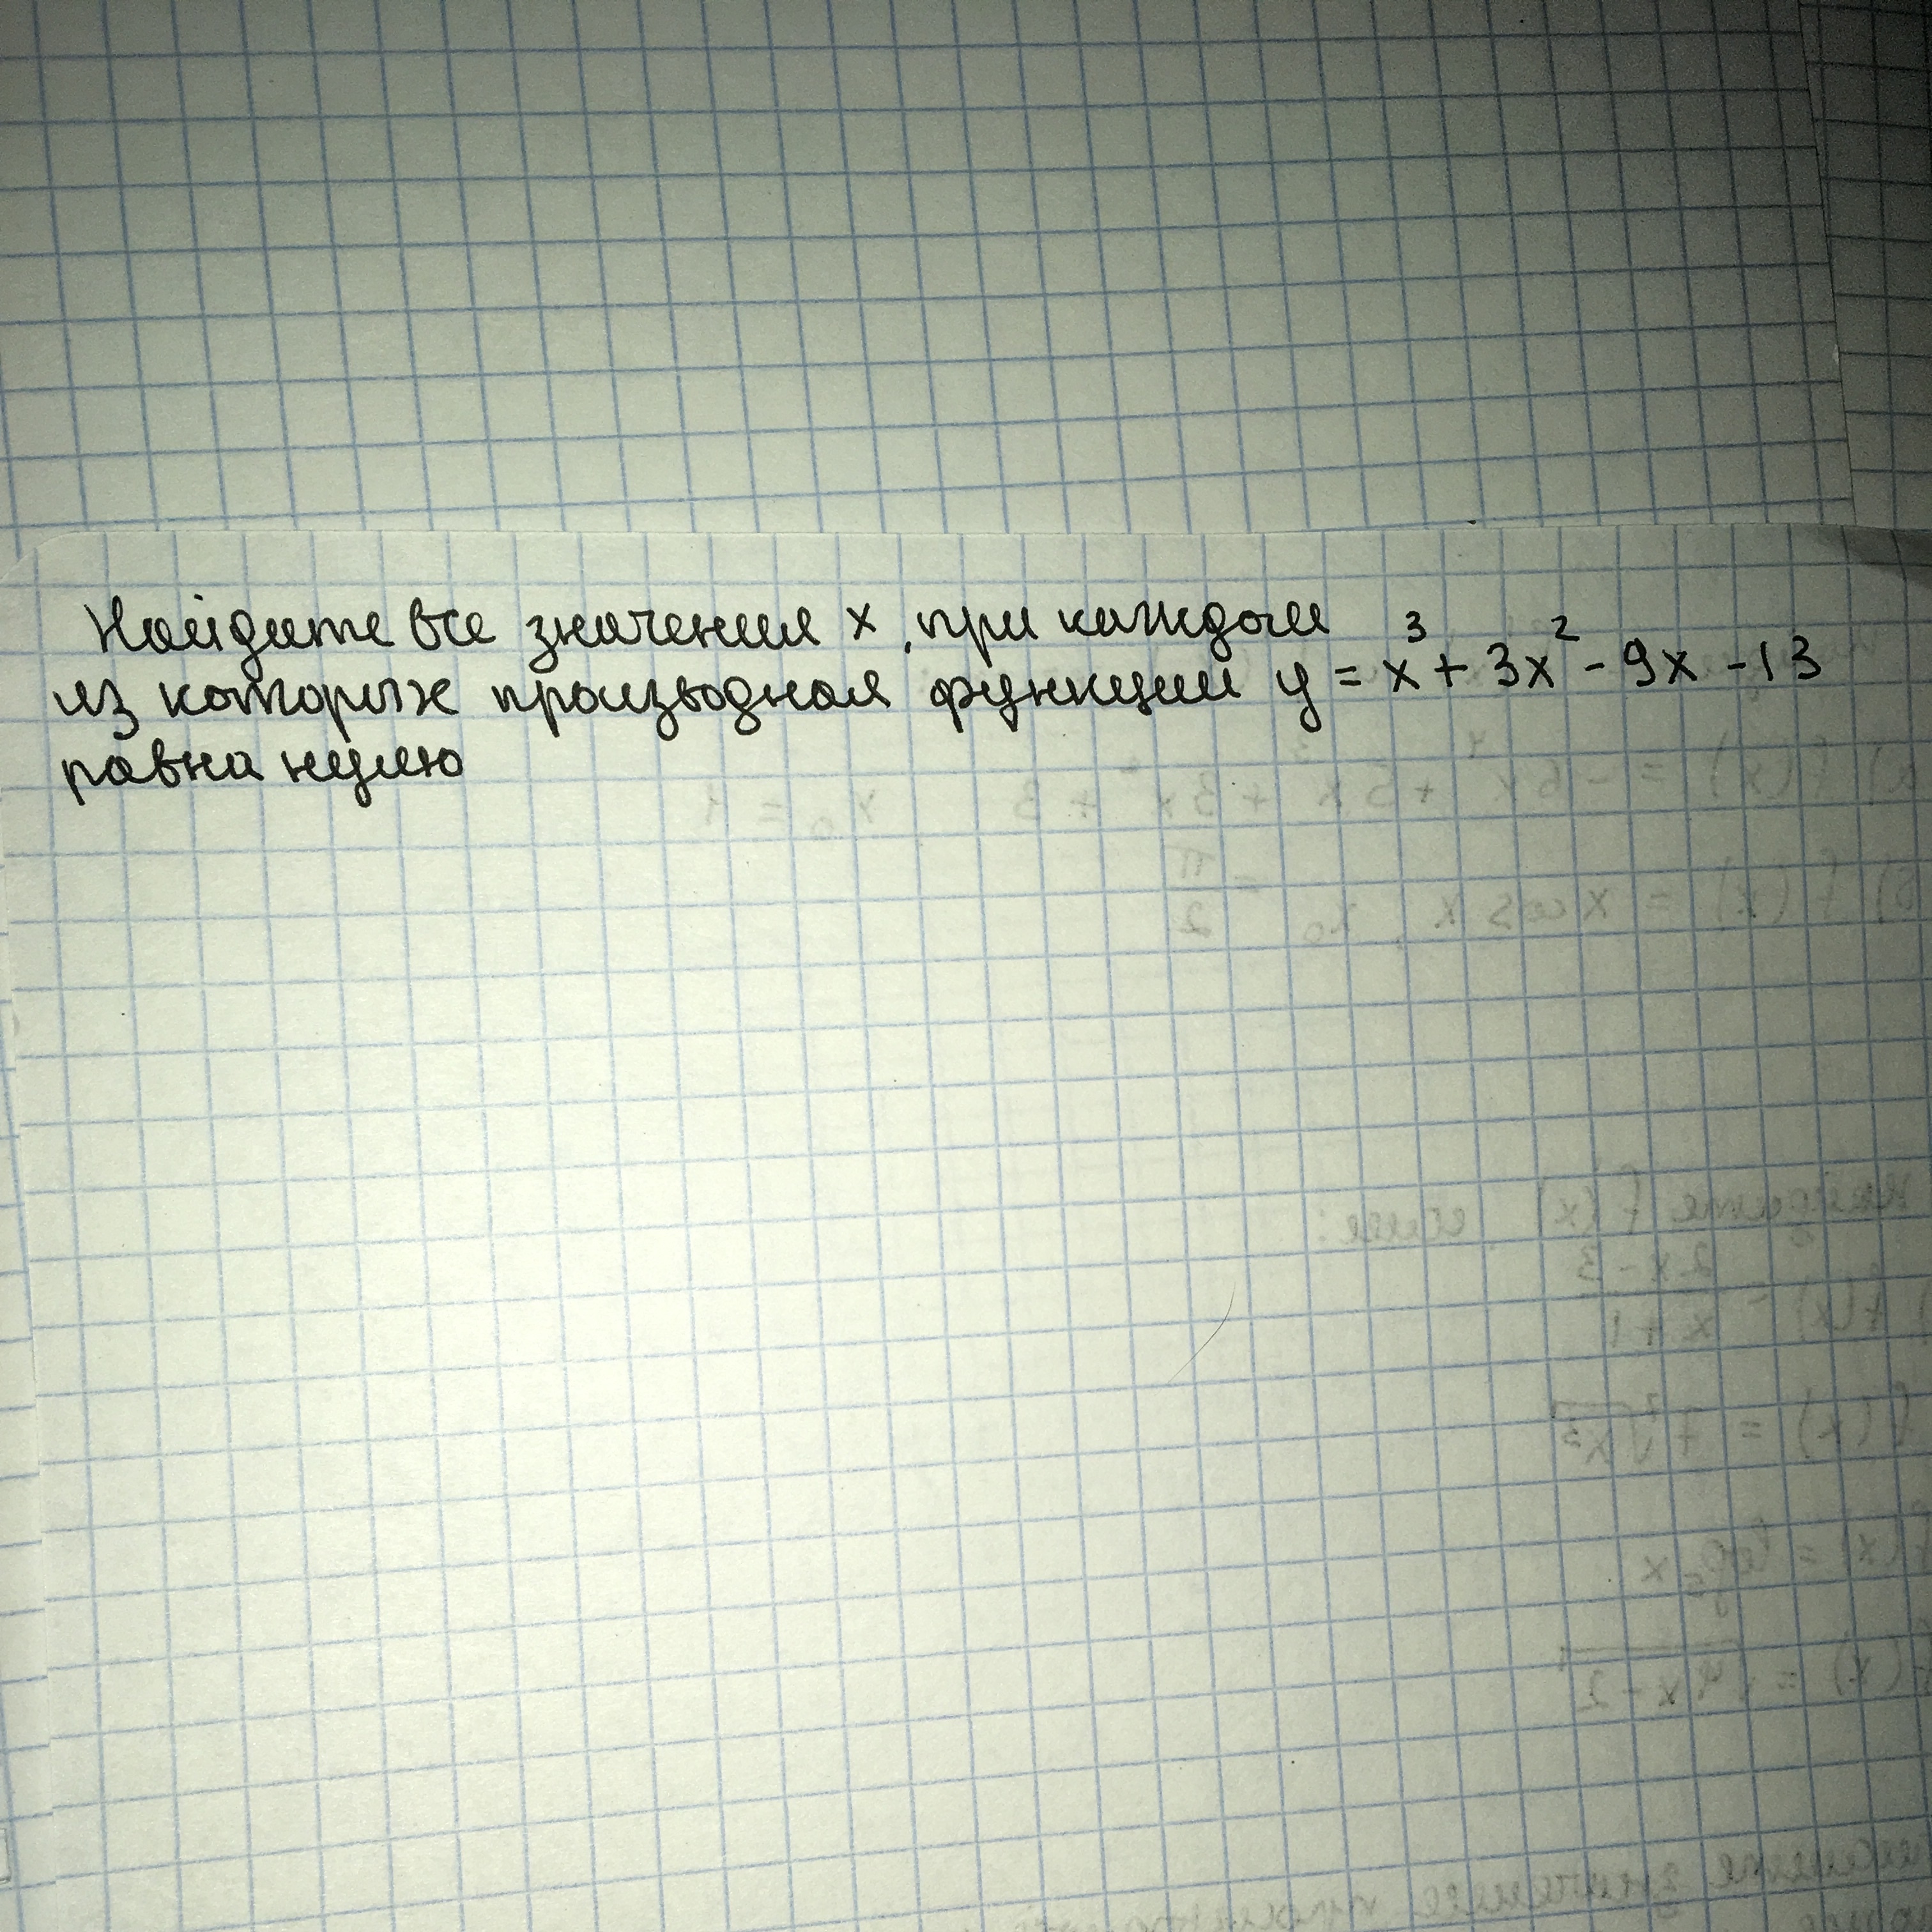 Найдите все значения x, при каждом
из которых производная функции y = x³ + 3x² - 9x - 13
равна нулю